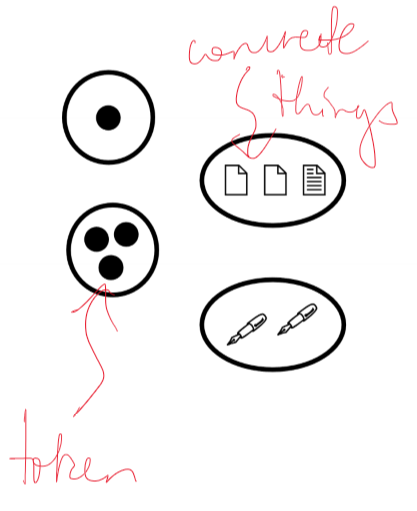 concrete
things
token